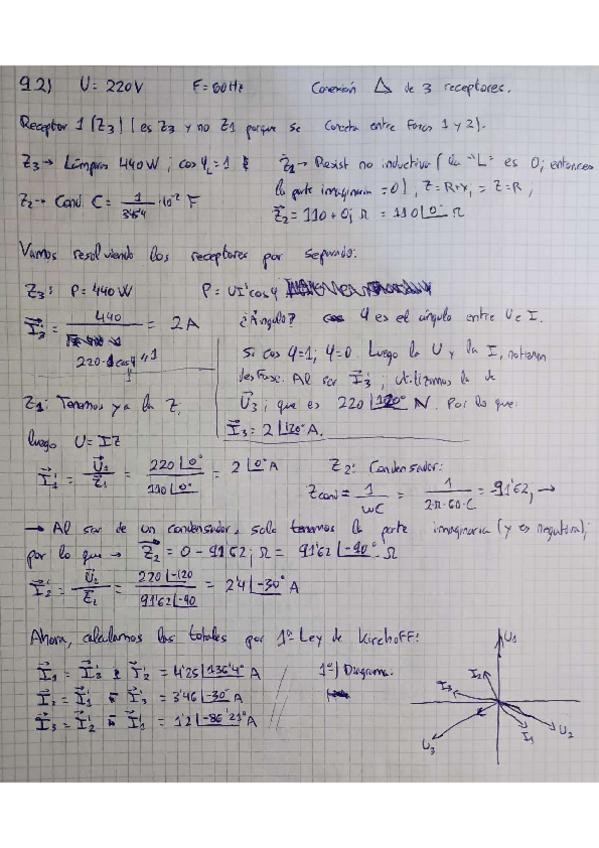 9.2) U= 220V F=60Hz Conexión Δ de 3 receptores.
Receptor 1 (Z3) | es Z3 y no Z1 porque se conecta entre fases 1 y 2).
Z3→ Lámpara 440W; cos φL=1
Z1→ Resist no inductiva ( "L" es 0; entonces
la parte imaginaria =0), Z=R+x, = Z=R;
Z2→ Cond. C= 1/3454 ·10⁻² F
Z2= 110+0j Ω = 110∠0° Ω
Vamos resolviendo los receptores por separado:
Z3: P=440W P= UI'cosφ
I2' = 440 / 220·1 cosφ = 2A
¿Ángulo? φ es el ángulo entre U e I.
Si cos φ=1; φ=0. Luego la U y la I, no tienen
desfase. Al ser I3', utilizamos la de
U3; que es 220∠120° V. Por lo que:
I3= 2∠120° A.
Z1: Tenemos ya la Z,
luego U= IZ
I1' = U1/Z1 = 220∠0° / 110∠0° = 2∠0° A
Z2: Condensador:
Zcond = 1/ωC = 1/2·π·60·C = -91'62j →
→ Al ser de un condensador, solo tenemos la parte imaginaria (y es negativa);
por lo que → Z2 = 0 - 91'62j Ω = 91'62∠-90° Ω
I2' = U2/Z2 = 220∠-120 / 91'62∠-90 = 2'4∠-30° A
Ahora, calculamos las totales por 1ª Ley de Kirchoff:
I1 = I3' I2' = 4'25∠136'4° A
I2 = I1' I3' = 3'46∠-30° A
I3 = I2' I1' = 1'2∠-86'21° A
1º) Diagrama.
U1
I2
I3
U3
I1
U2